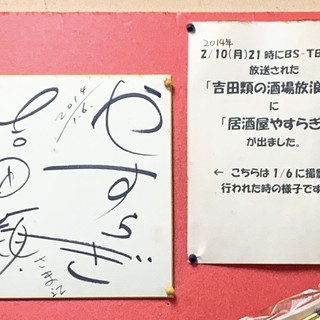 2014年
2/10(月)21時にBS-TB
放送された
「吉田類の酒場放浪
に
「居酒屋やすらぎ
が出ました。
← こちらは1/6に撮影
行われた時の様子です
2014
1.6.
やすらぎ